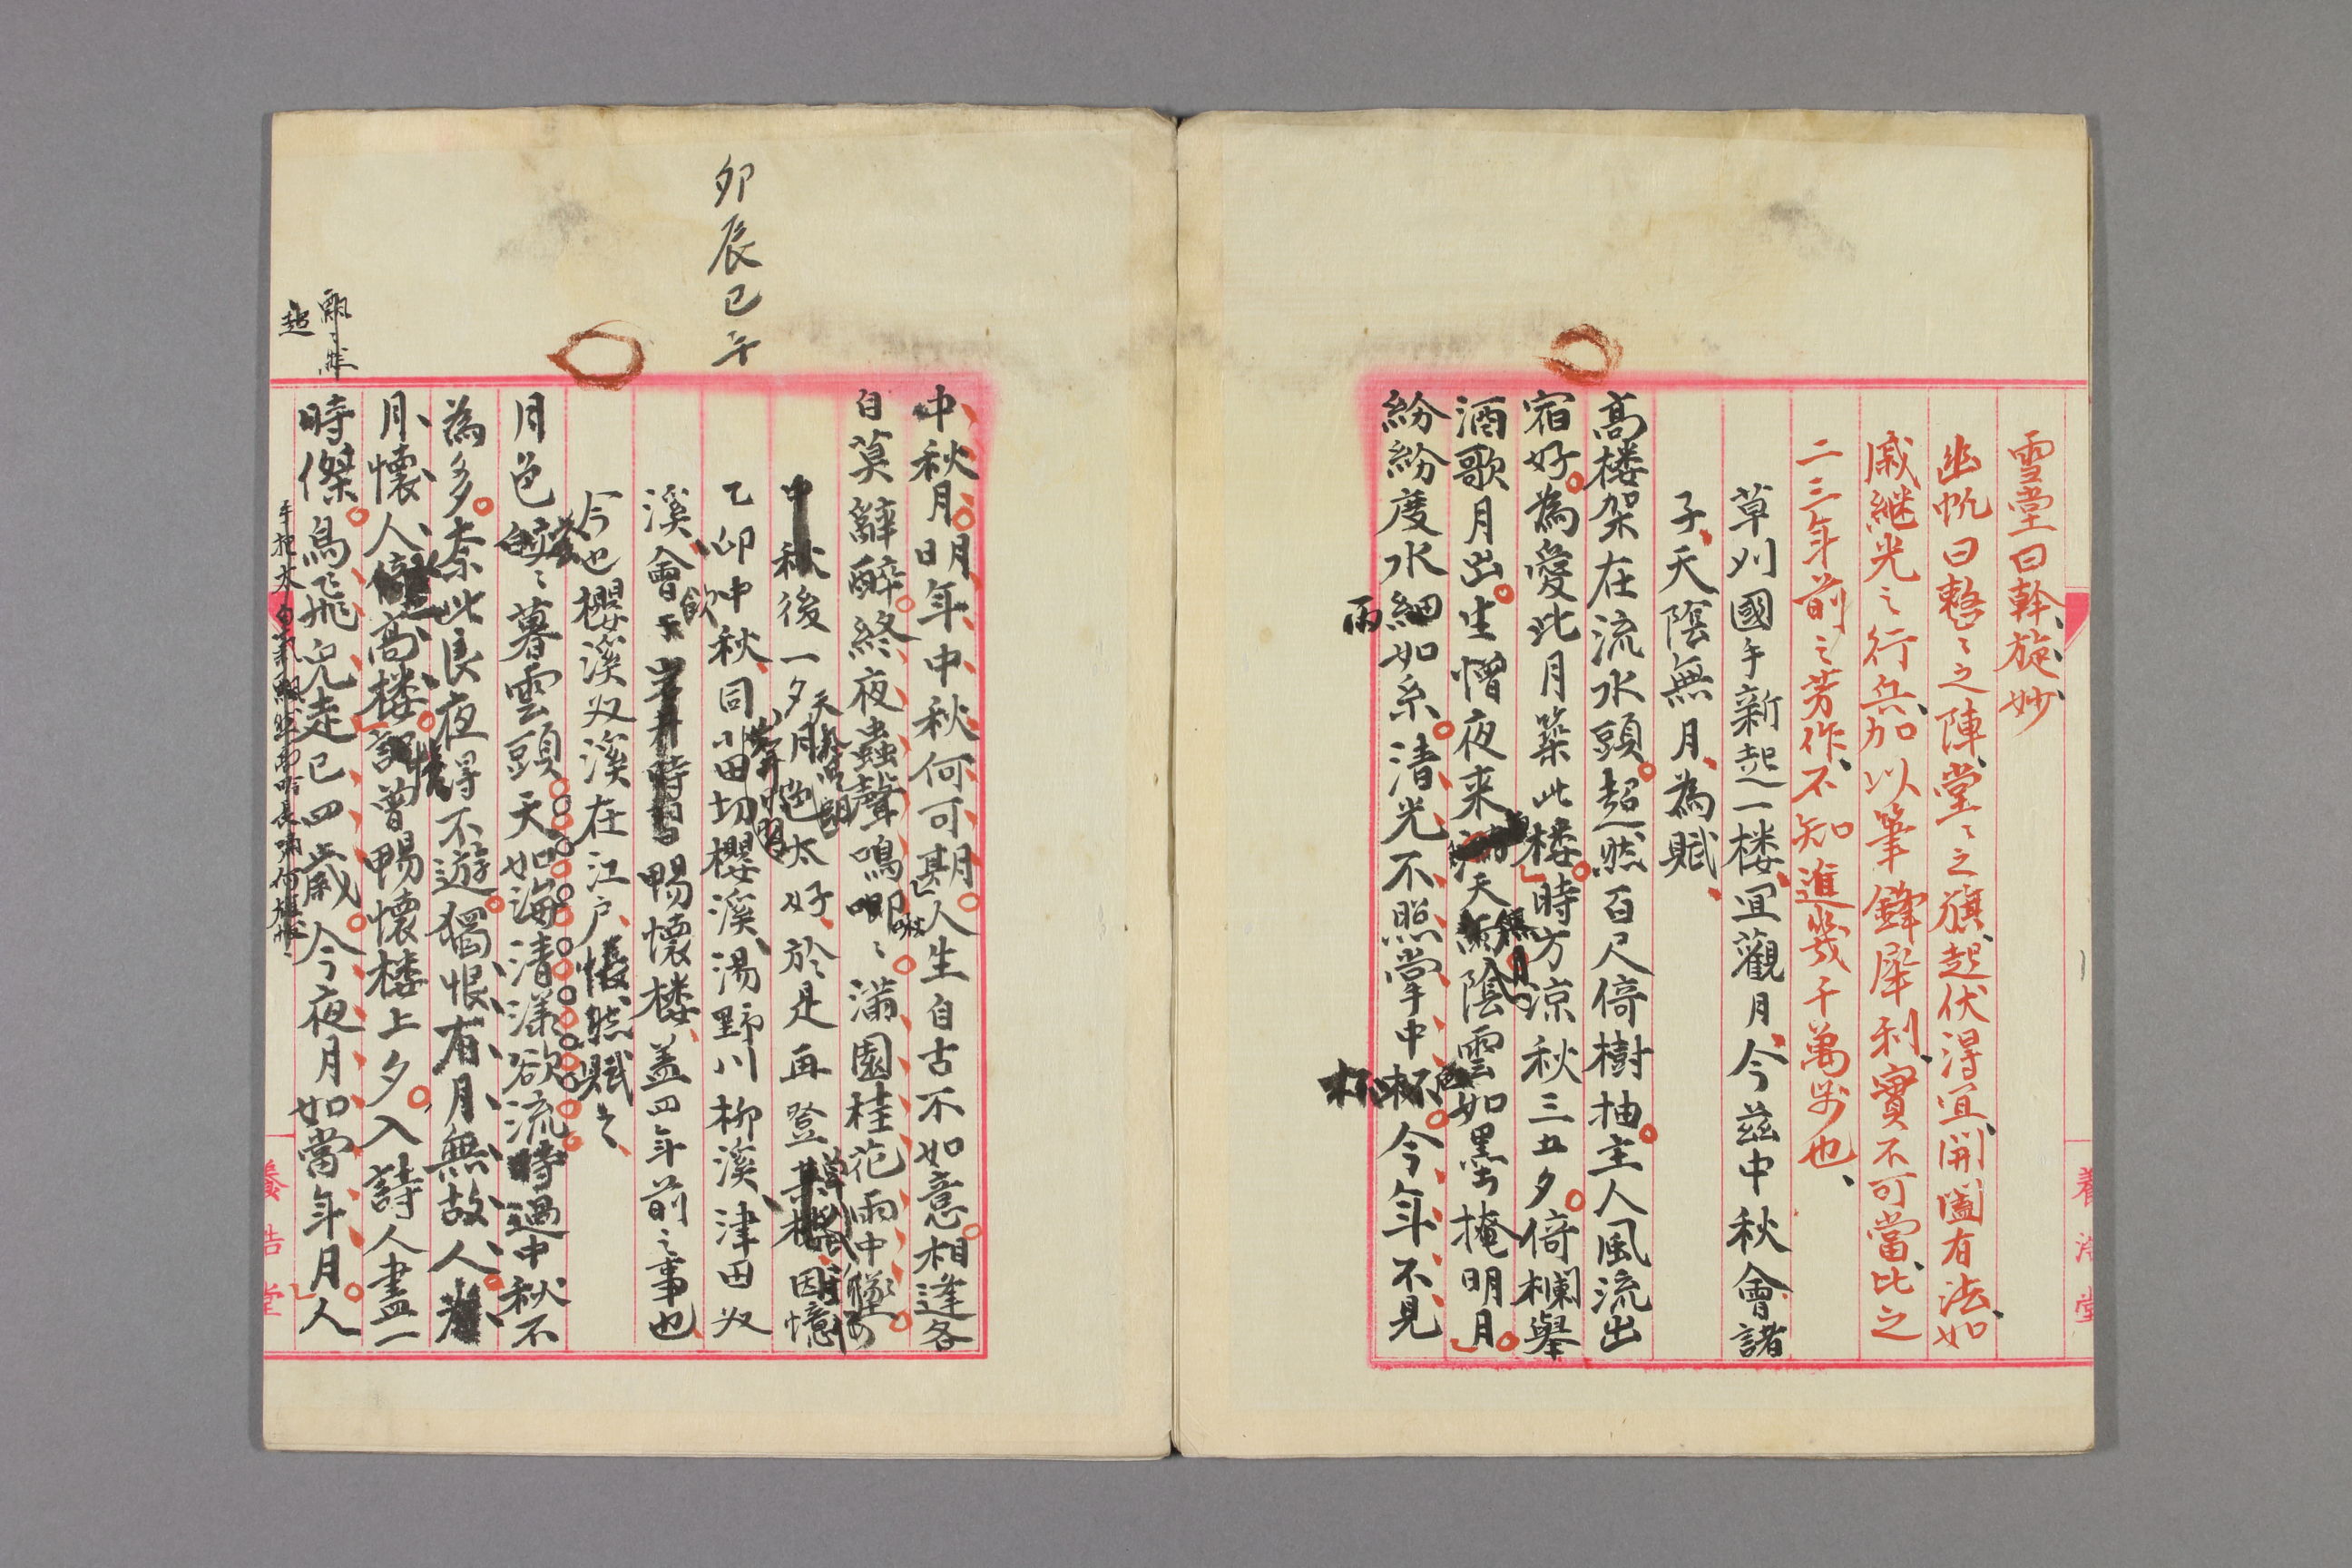 雪堂曰幹旋妙
幽帆曰整〻之陣堂〻之旗起伏得宜開闔有法如
戚継光之行兵加以筆鋒犀利實不可當比之
二三年前之芳作不知進幾千萬歩也
草刈國手新起一楼宜觀月今茲中秋會諸
子天陰無月為賦
高楼架在流水頭超然百尺倚樹抽主人風流出
宿好為愛此月築此楼時方涼秋三五夕倚欄舉
酒歌月出生憎夜来天無月陰雲如墨掩明月
紛紛度水細雨如糸清光不照掌中杯今年不見
養浩堂
中秋月明年中秋何可期人生自古不如意相逢各
自莫辭酔終夜蟲聲鳴喞〻満園桂花雨中墜
中秋後一夕天月色太好於是再登因憶
乙卯中秋同小田切櫻溪湯野川柳溪津田双
溪會飲暢懐楼蓋四年前之事也
今也櫻溪双溪在江戸悵然賦之
月色暮雲頭天如海清漾欲流時遇中秋不
為多奈此良夜得不遊獨恨有月無故人
月懐人高楼曽暢懐楼上夕入詩人盡一
時傑鳥飛兎走已四歳今夜月如當年月人
卯辰巳午
超
養浩堂